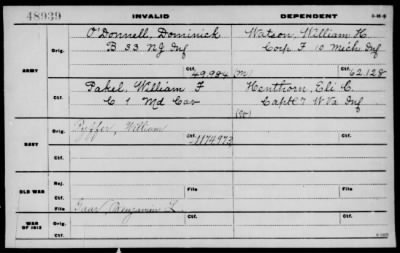 48939 INVALID DEPENDENT
O'Donnell, Dominick Watson, William H.
Orig. B 33 NJ Inf Corp F 10 Mich Inf
ARMY Ctf. 49,984 (M) Ctf. 62,128
Pakel, William F Henthorn, Eli C.
Ctf. C 1 Md Cav Capt C 7 W Va Inf
(W)
Orig. Pfeffer, William Ctf.
NAVY 1174972
Ctf.
Rej. Ctf.
OLD WAR
Ctf. File File
Orig. Isaar, Benjamin L. Ctf. Ctf.
WAR OF 1812
Ctf.